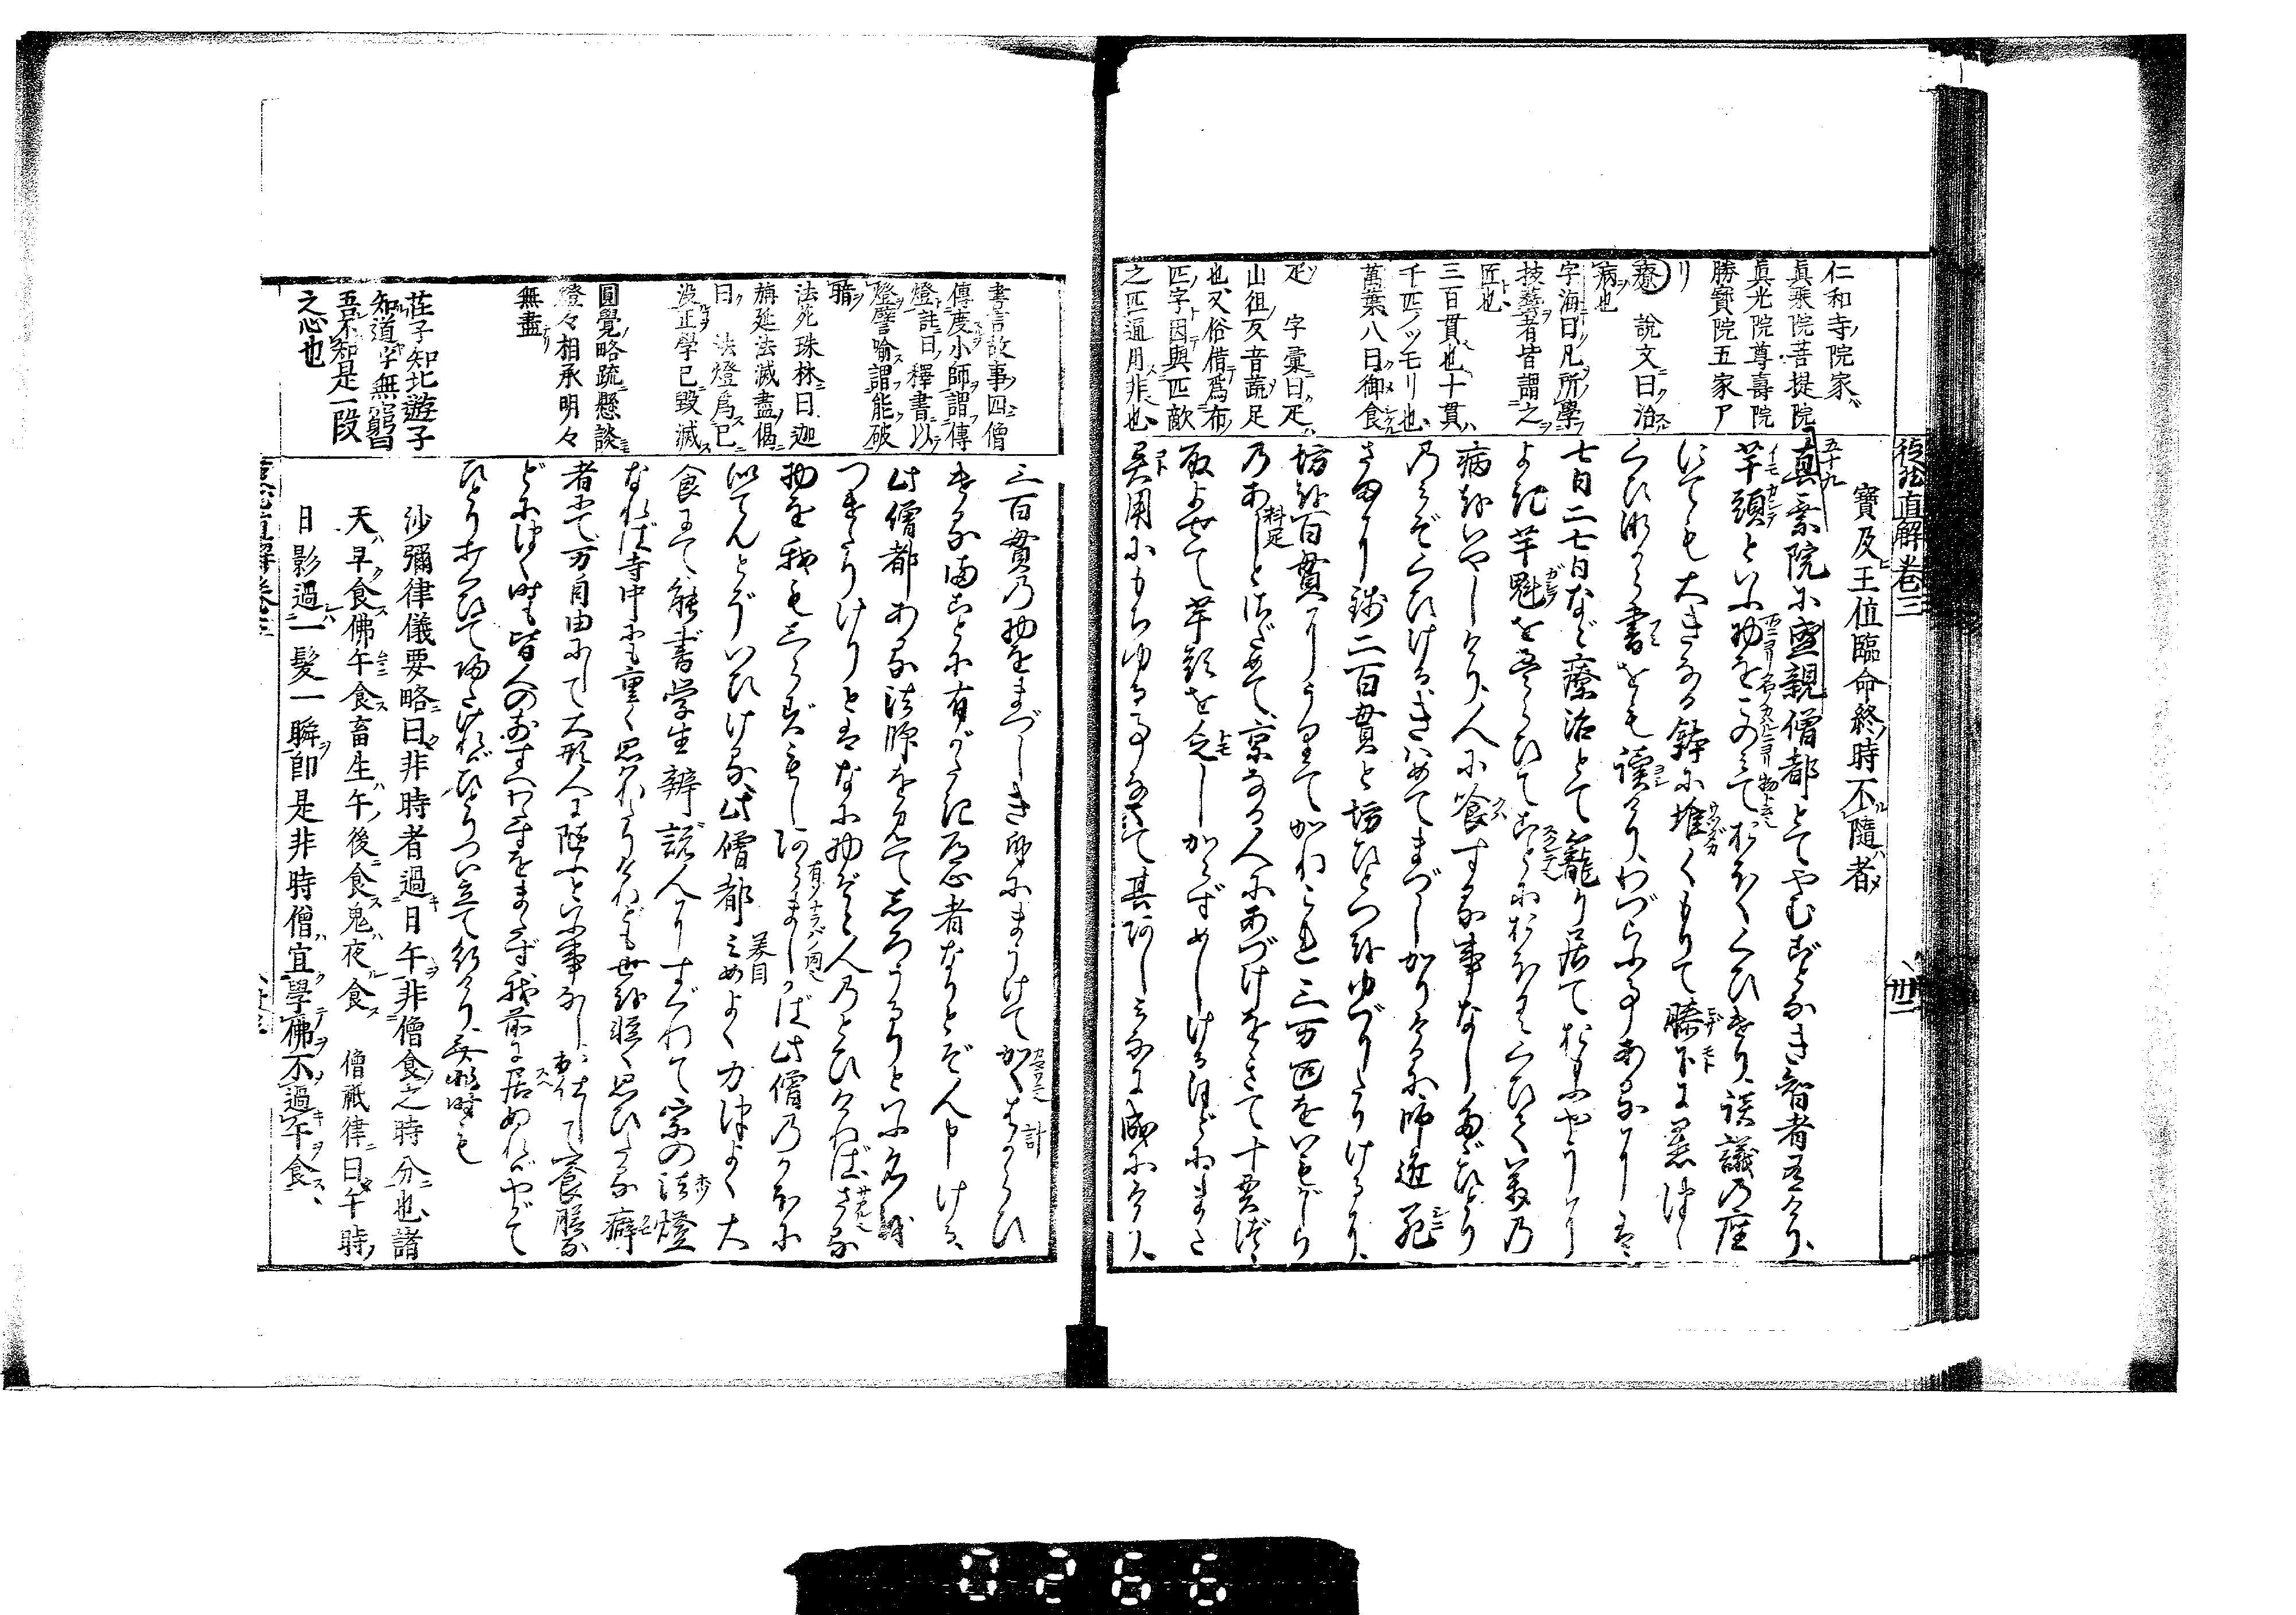 徒然直解卷三
卅一
仁和寺ノ院家ハ
真乘院菩提院
真光院尊壽院
勝寶院五家ア
リ
療 說文曰治
病也
字海曰凡所學
技藝者皆謂之
匠也
三百貫也十貫ハ
千匹ノツモリ也
萬葉八日御食
疋 字彙曰疋
山徂反音蔬足
也又俗借爲布
匹字因與匹敵
之匹通用非也
寶及王位臨命終時不隨者
五十九
真乘院に盛親僧都とてやむごとなき智者有けり、
芋頭といふ物をこのみておほくくひけり、談議の座
にても大きなる鉢に堆くもりて膝下に置つゝ
くひながら書をも讀けり、わづらふ事あるには
七日二七日など療治とて籠り居ておもふやうに
よき芋魁をえらひてことにおほくくひて萬の
病をいやしけり、人に喰する事なしたゞひとり
のみぞくひけるきはめてまづしかりけるに師匠死
さまに錢二百貫と坊ひとつをゆづりたりけるを、
坊を百貫にうりてかれこれ三万疋をいもがしら
のあしとさだめて、京なる人にあづけをきて十貫づゝ
取よせて芋頭を乏しからずめしけるほどにまた
異用にもちゆる事なくて其あしみなに成にけり、
書言故事四僧
傳度小師謂傳
燈註曰釋書以
燈譬喩謂能破
暗
法苑珠林曰迦
旃延法滅盡偈
曰 法燈爲已
没正學已毀滅
圓覺略疏懸談
燈々相承明々
無盡
莊子知北遊子
知道乎無窮曰
吾不知是一段
之心也
三百貫の物をまづしき身にまうけてかくはからひ
ける誠にありがたき道心者なりとぞ人申ける、
此僧都ある法師を見てしろうるりといふ名を
つけたりけりとはなに物ぞと人のとひければさる
物を我もしらずもしあらましかば此僧のかほに
似てんとぞいひける、此僧都みめよく力つよく大
食にて能書学生辨説人にすぐれて宗の法燈
なれば寺中にも重く思はれたりけれども世を軽く思ひたる癖
者にて万自由にして大形人に随ふといふ事なし、出仕して饗膳な
どにつく時も皆人の前すへわたすをまたず我前に居ぬればやがて
ひとり打くひて帰たければひとりつい立て行けり、斎非時も
沙彌律儀要略曰非時者過日午非僧食之時分也諸
天ハ早食佛午食畜生午後食鬼夜食 僧祇律曰午時
日影過一髮一瞬即是非時僧宜學佛不過午食
0266